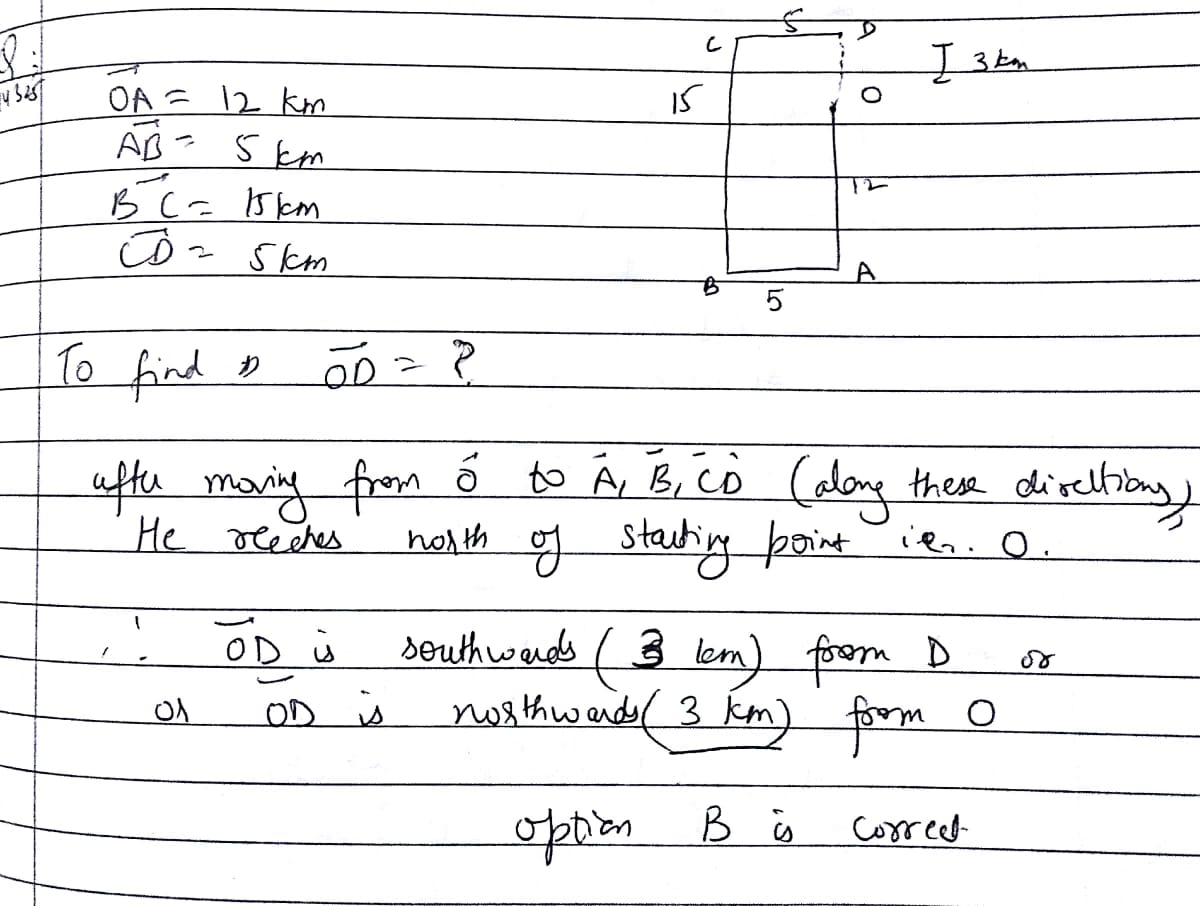 S
C D
I 3 km
Q:
OA = 12 km 15 O
AB = 5 km
12
BC = 15 km
CD = 5 km
A
B 5
To find OD = ?
after moving from O to A, B, CD (along these directions)
He reeches north of starting point ie. O.
∴ OD is southwards (3 km) from D or
or OD is northwards (3 km) from O
option B is correct